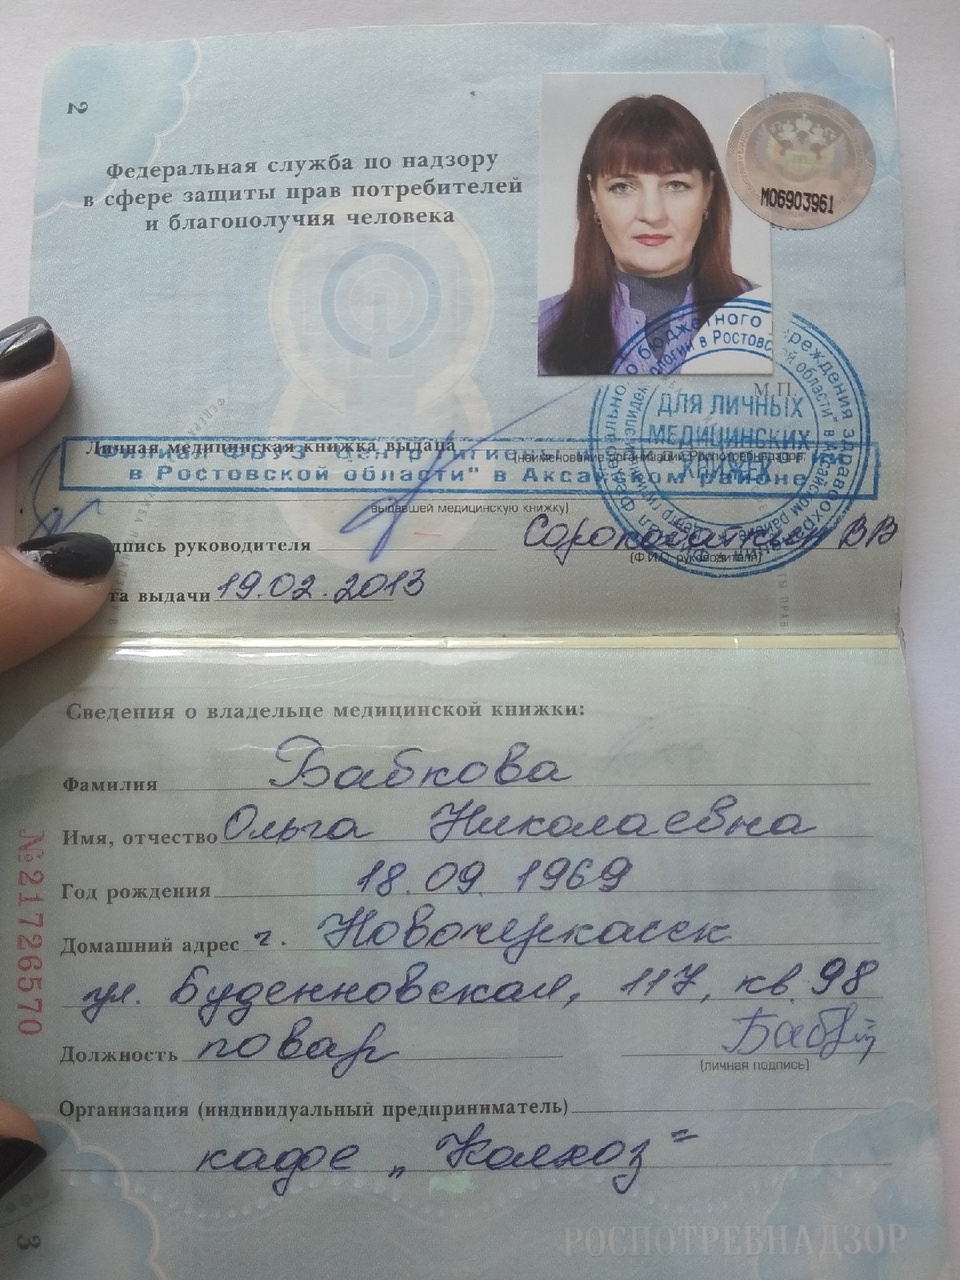 2
Федеральная служба по надзору
в сфере защиты прав потребителей
и благополучия человека
М06903961
М.П.
ДЛЯ ЛИЧНЫХ
МЕДИЦИНСКИХ
КНИЖЕК
Личная медицинская книжка выдана
(наименование организации Роспотребнадзора,
в Ростовской области" в Аксайском районе
выдавшей медицинскую книжку)
подпись руководителя Сорокобаткин ВВ
(Ф.И.О. руководителя)
та выдачи 19.02.2013
Сведения о владельце медицинской книжки:
Фамилия Бабкова
Имя, отчество Ольга Николаевна
Год рождения 18.09.1969
Домашний адрес г. Новочеркасск
ул. Буденновская, 117, кв. 98
Должность повар
(личная подпись)
Организация (индивидуальный предприниматель)
кафе „Колхоз"
№21726570
3
РОСПОТРЕБНАДЗОР